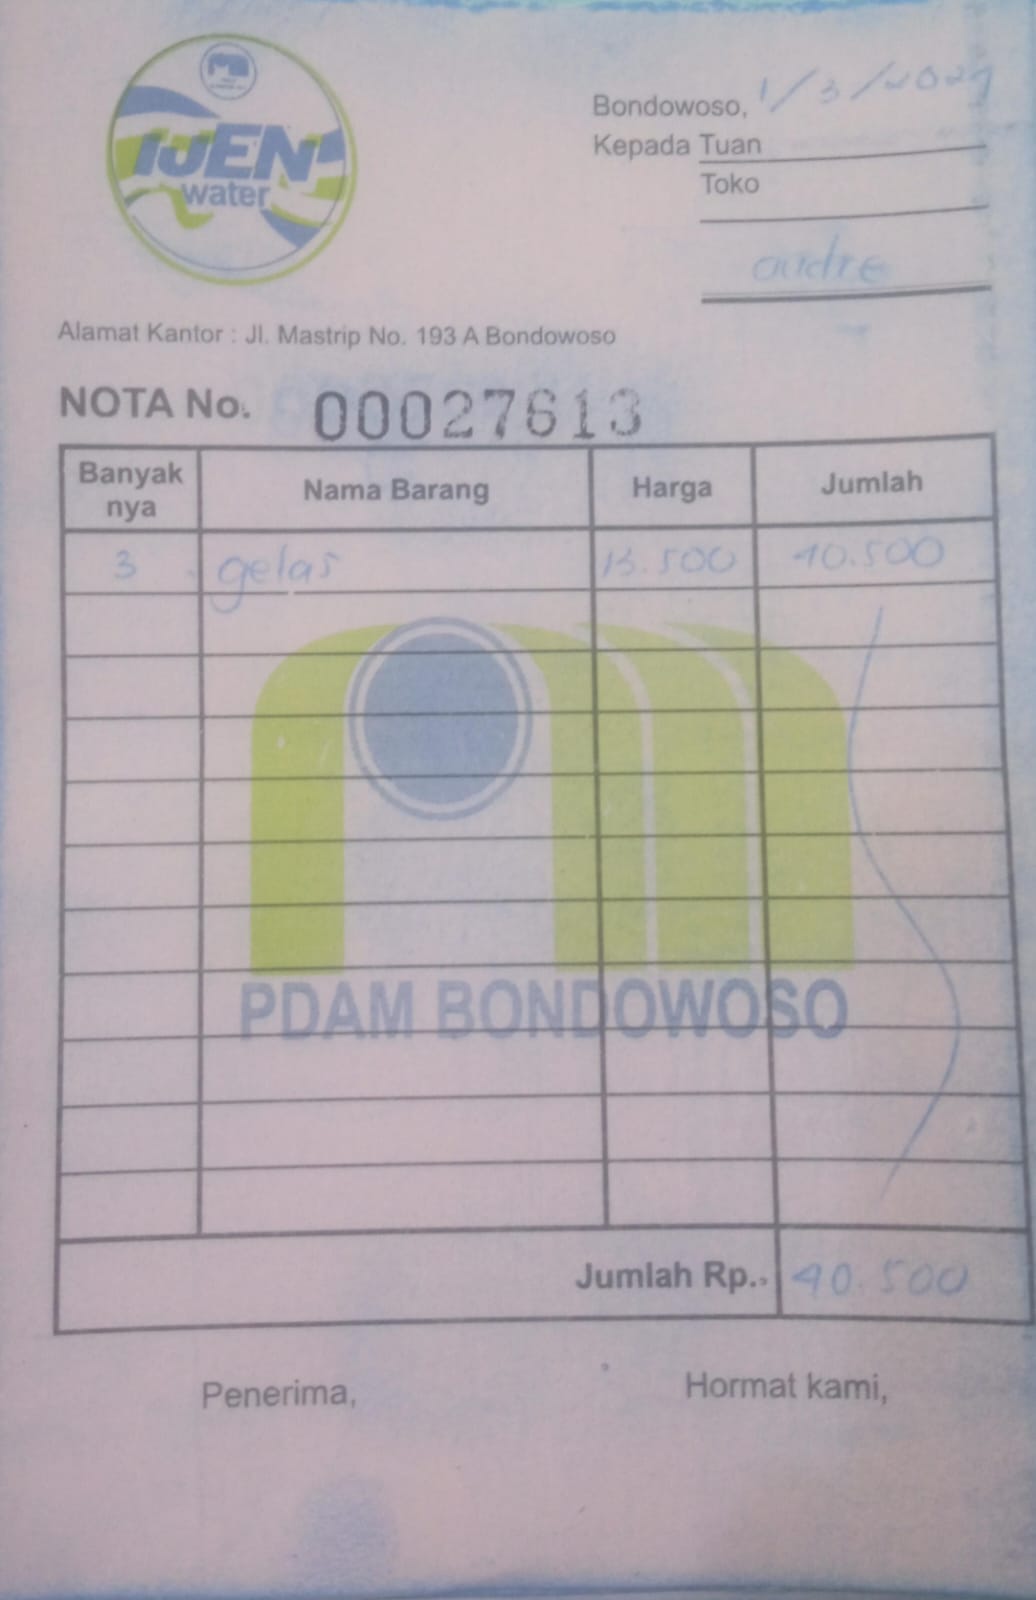 IJEN
water
Bondowoso, 1/3/2024
Kepada Tuan
Toko
andre
Alamat Kantor : Jl. Mastrip No. 193 A Bondowoso
NOTA No. 00027613
Banyak nya Nama Barang Harga Jumlah
3 gelas 13.500 40.500
PDAM BONDOWOSO
Jumlah Rp. 40.500
Penerima, Hormat kami,